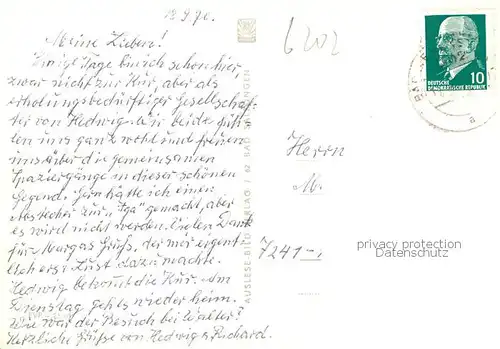 12.9.70.
Meine Lieben!
Einige Tage bin ich schon hier,
zwar nicht zur Kur, aber als
erholungsbedürftiger Gesellschaf-
ter von Hedwig. Wir beide füh-
len uns ganz wohl und freuen
uns über die gemeinsamen
Spaziergänge in dieser schönen
Gegend. Gern hätte ich einen
Abstecher zur "Iga" gemacht, aber
es wird nicht werden. Vielen Dank
für Margas Gruß, der mir eigent-
lich erst Lust dazu machte.
Hedwig bekommt die Kur. Am
Dienstag geht's wieder heim.
Wie war der Besuch bei Walter?
Herzliche Grüße von Hedwig & Richard.
AUSLESE-BILD-VERLAG 62 BAD SALZUNGEN
6202
10
DEUTSCHE
DEMOKRATISCHE REPUBLIK
BAD
a
Herrn
M.
7241-,
privacy protection
Datenschutz